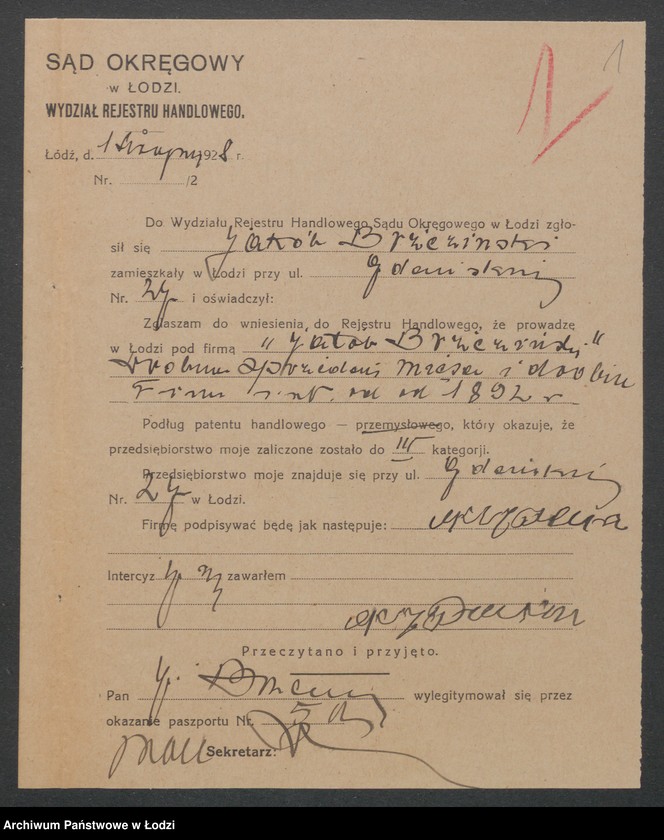 1
SĄD OKRĘGOWY
w ŁODZI.
WYDZIAŁ REJESTRU HANDLOWEGO.
Łódź, d. 1928 r.
Nr. /2
Do Wydziału Rejestru Handlowego Sądu Okręgowego w Łodzi zgło-
sił się Jakób Brzeziński
zamieszkały w Łodzi przy ul. Gdańskiej
Nr. 27 i oświadczył:
Zgłaszam do wniesienia do Rejestru Handlowego, że prowadzę
w Łodzi pod firmą „Jakób Brzeziński"
Drobna sprzedaż mięsa i drobiu
Firma istn. od 1892 r
Podług patentu handlowego — przemysłowego, który okazuje, że
przedsiębiorstwo moje zaliczone zostało do III kategorji.
Przedsiębiorstwo moje znajduje się przy ul. Gdańskiej
Nr. 27 w Łodzi.
Firmę podpisywać będę jak następuje:
Intercyz zawarłem
Przeczytano i przyjęto.
Pan J. wylegitymował się przez
okazanie paszportu Nr.
Sekretarz:
Archiwum Państwowe w Łodzi